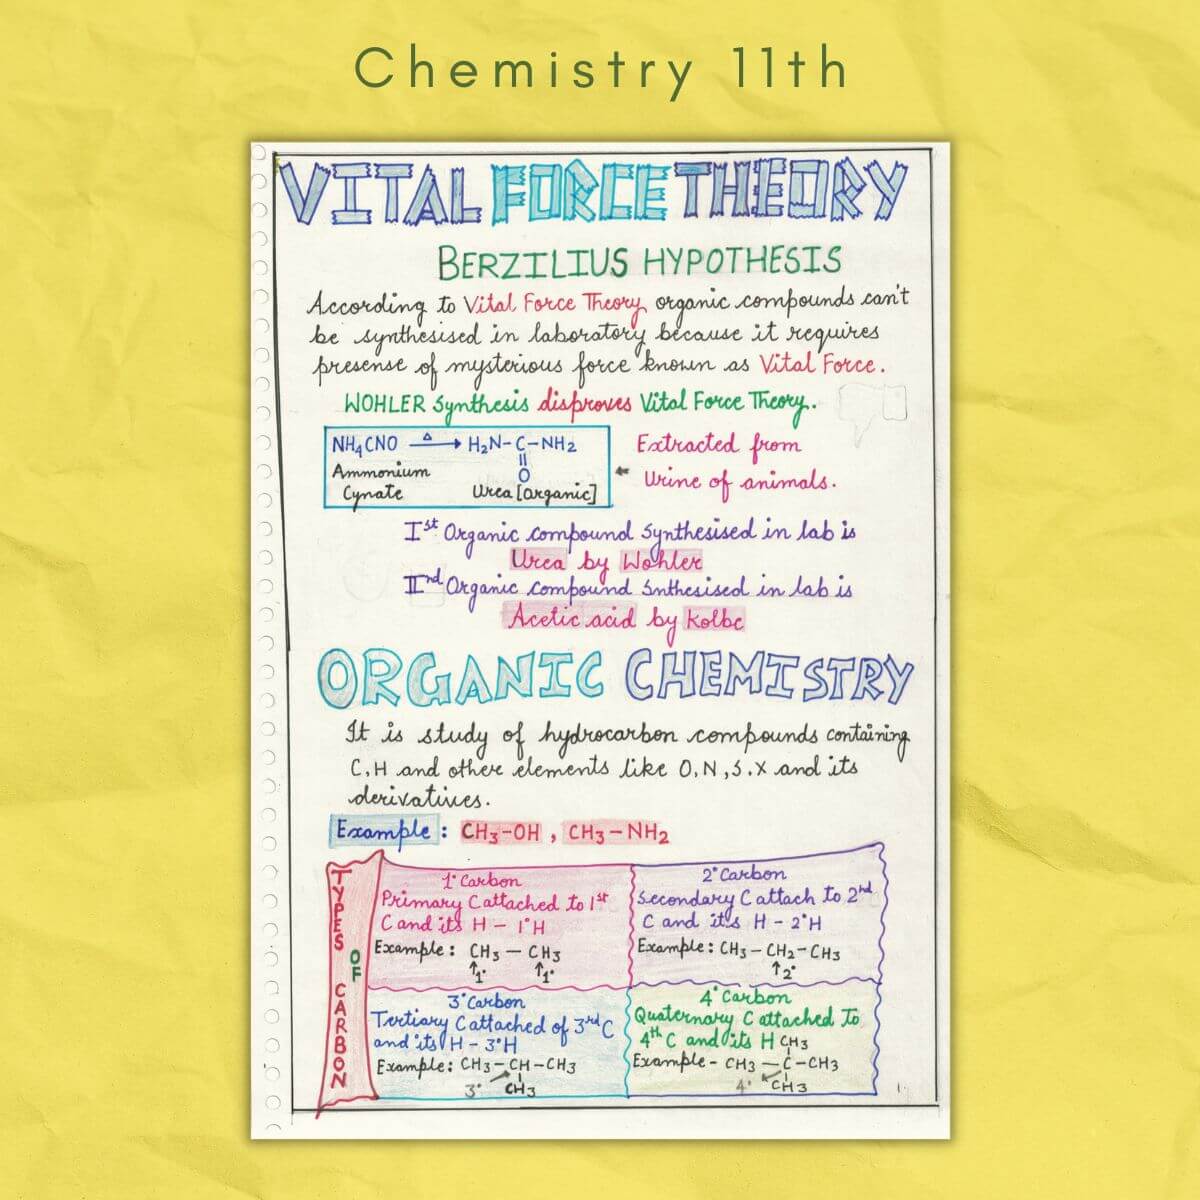 Chemistry 11th
VITAL FORCE THEORY
BERZILIUS HYPOTHESIS
According to Vital Force Theory organic compounds can't
be synthesised in laboratory because it requires
presense of mysterious force known as Vital Force.
WOHLER Synthesis disproves Vital Force Theory.
NH4CNO Δ→ H2N-C-NH2
||
O
Ammonium
Cynate
Urea [organic]
Extracted from
Urine of animals.
Ist Organic compound Synthesised in lab is
Urea by Wohler
IInd Organic compound Snthesised in lab is
Acetic acid by Kolbe
ORGANIC CHEMISTRY
It is study of hydrocarbon compounds containing
C, H and other elements like O, N, S, X and its
derivatives.
Example : CH3-OH , CH3-NH2
TYPES OF CARBON
1° Carbon
Primary C attached to 1st
C and its H - 1°H
Example : CH3 - CH3
↑1° ↑1°
2° Carbon
Secondary C attach to 2nd
C and it's H - 2°H
Example : CH3-CH2-CH3
↑2°
3° Carbon
Tertiary C attached of 3rd C
and its H - 3°H
Example : CH3-CH-CH3
3° CH3
4° Carbon
Quaternary C attached To
4th C and its H CH3
Example - CH3 - C - CH3
4° CH3
1.